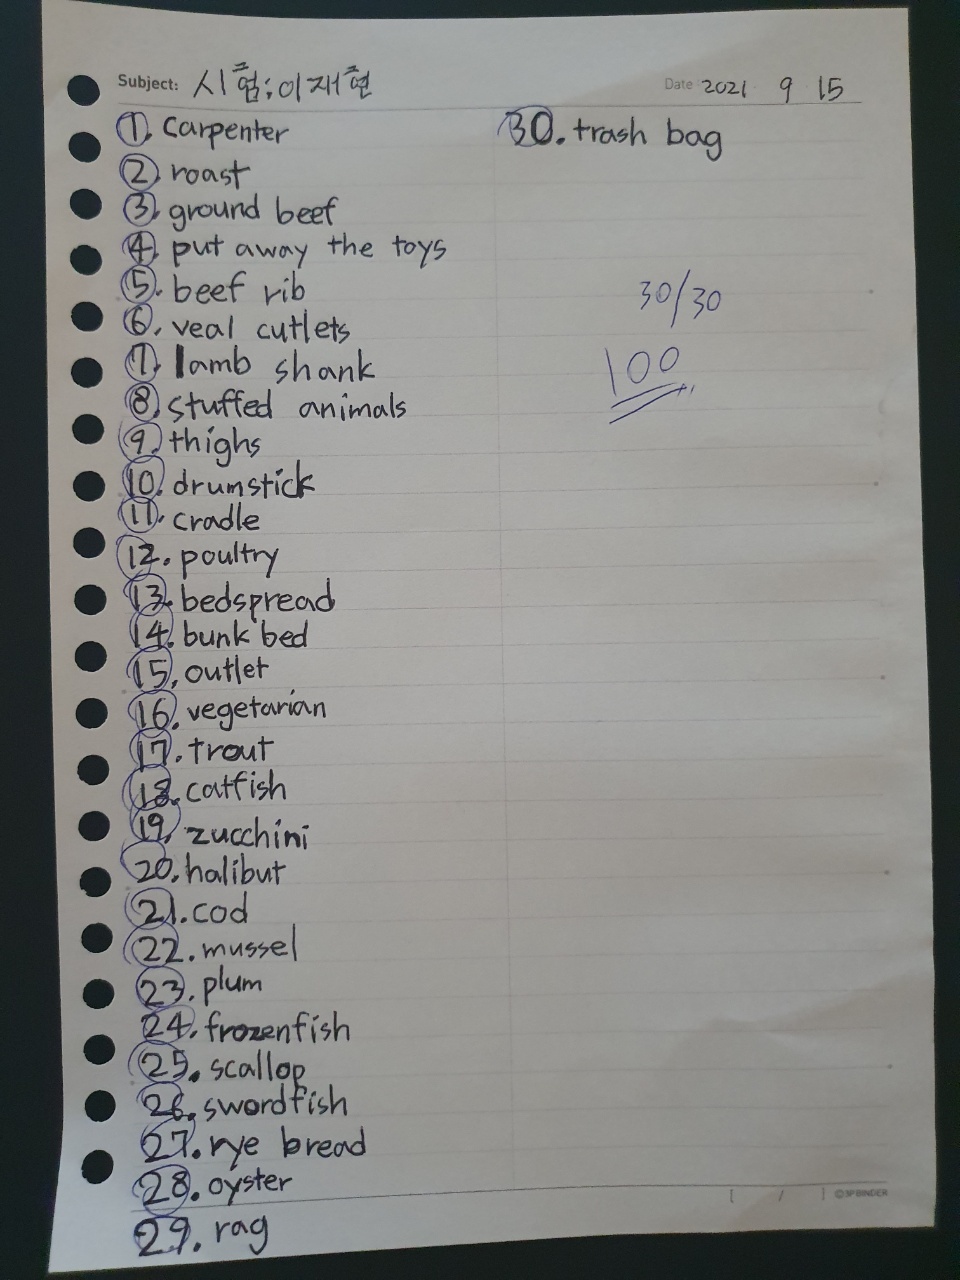 Subject: 시험;이재현
Date 2021 9 15
1. carpenter
2. roast
3. ground beef
4. put away the toys
5. beef rib
6. veal cutlets
7. lamb shank
8. stuffed animals
9. thighs
10. drumstick
11. cradle
12. poultry
13. bedspread
14. bunk bed
15. outlet
16. vegetarian
17. trout
18. catfish
19. zucchini
20. halibut
21. cod
22. mussel
23. plum
24. frozenfish
25. scallop
26. swordfish
27. rye bread
28. oyster
29. rag
30. trash bag
30/30
100
[ / ] ©3P BINDER